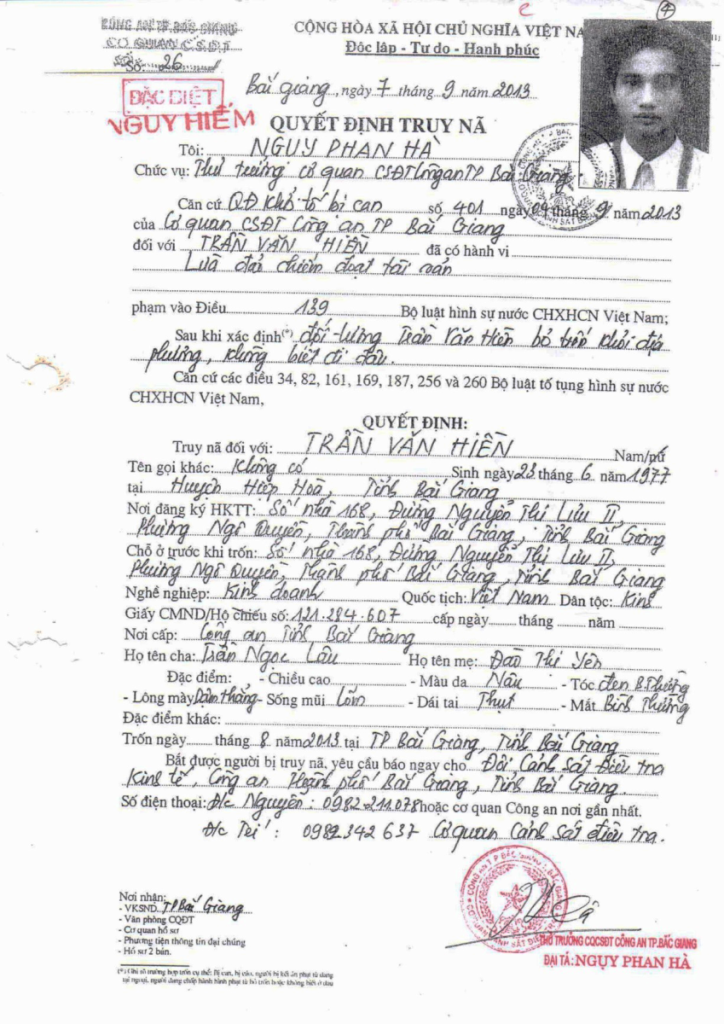 CÔNG AN TP.BẮC GIANG
CƠ QUAN CSĐT
Số: 26
CỘNG HÒA XÃ HỘI CHỦ NGHĨA VIỆT NA
Độc lập - Tự do - Hạnh phúc
ĐẶC BIỆT
NGUY HIỂM
Bắc giang, ngày 7 tháng 9 năm 2013
QUYẾT ĐỊNH TRUY NÃ
Tôi: NGUỴ PHAN HÀ
Chức vụ: Thủ trưởng cơ quan CSĐT Công an TP Bắc Giang.
Căn cứ QĐ Khởi tố bị can số 401 ngày 09 tháng 9 năm 2013
của Cơ quan CSĐT Công an TP Bắc Giang
đối với TRẦN VĂN HIỀN đã có hành vi
Lừa đảo chiếm đoạt tài sản
phạm vào Điều 139 Bộ luật hình sự nước CHXHCN Việt Nam;
Sau khi xác định(*) đối tượng Trần Văn Hiền bỏ trốn khỏi địa
phương, không biết đi đâu.
Căn cứ các điều 34, 82, 161, 169, 187, 256 và 260 Bộ luật tố tụng hình sự nước
CHXHCN Việt Nam,
QUYẾT ĐỊNH:
Truy nã đối với: TRẦN VĂN HIỀN Nam/nữ
Tên gọi khác: Không có Sinh ngày 23 tháng 6 năm 1977
tại Huyện Hiệp Hoà, Tỉnh Bắc Giang
Nơi đăng ký HKTT: Số nhà 168, Đường Nguyễn Thị Lưu II,
Phường Ngô Quyền, Thành phố Bắc Giang, Tỉnh Bắc Giang
Chỗ ở trước khi trốn: Số nhà 168, Đường Nguyễn Thị Lưu II,
Phường Ngô Quyền, Thành phố Bắc Giang, Tỉnh Bắc Giang
Nghề nghiệp: Kinh doanh Quốc tịch: Việt Nam Dân tộc: Kinh
Giấy CMND/Hộ chiếu số: 121.284.607 cấp ngày tháng năm
Nơi cấp: Công an Tỉnh Bắc Giang
Họ tên cha: Trần Ngọc Lâu Họ tên mẹ: Đào Thị Yên
Đặc điểm: - Chiều cao - Màu da Nâu - Tóc đen B.Thường
- Lông mày Rậm thẳng - Sống mũi Lõm - Dái tai Thụt - Mắt Bình Thường
Đặc điểm khác:
Trốn ngày tháng 8 năm 2013 tại TP Bắc Giang, Tỉnh Bắc Giang
Bắt được người bị truy nã, yêu cầu báo ngay cho Đội Cảnh Sát Điều tra
Kinh tế, Công an Thành phố Bắc Giang, Tỉnh Bắc Giang.
Số điện thoại: Đ/c Nguyên: 0982.211.078 hoặc cơ quan Công an nơi gần nhất.
Đ/c 0982.342 637 Cơ quan Cảnh sát điều tra.
Nơi nhận:
- VKSND. TP Bắc Giang
- Văn phòng CQĐT
- Cơ quan hồ sơ
- Phương tiện thông tin đại chúng
- Hồ sơ 2 bản.
THỦ TRƯỞNG CQCSĐT CÔNG AN TP.BẮC GIANG
ĐẠI TÁ: NGỤY PHAN HÀ
(*) Ghi rõ trường hợp trốn cụ thể: Bị can, bị cáo, người bị kết án phạt tù đang
tại ngoại, người đang chấp hành hình phạt tù bỏ trốn hoặc không biết ở đâu